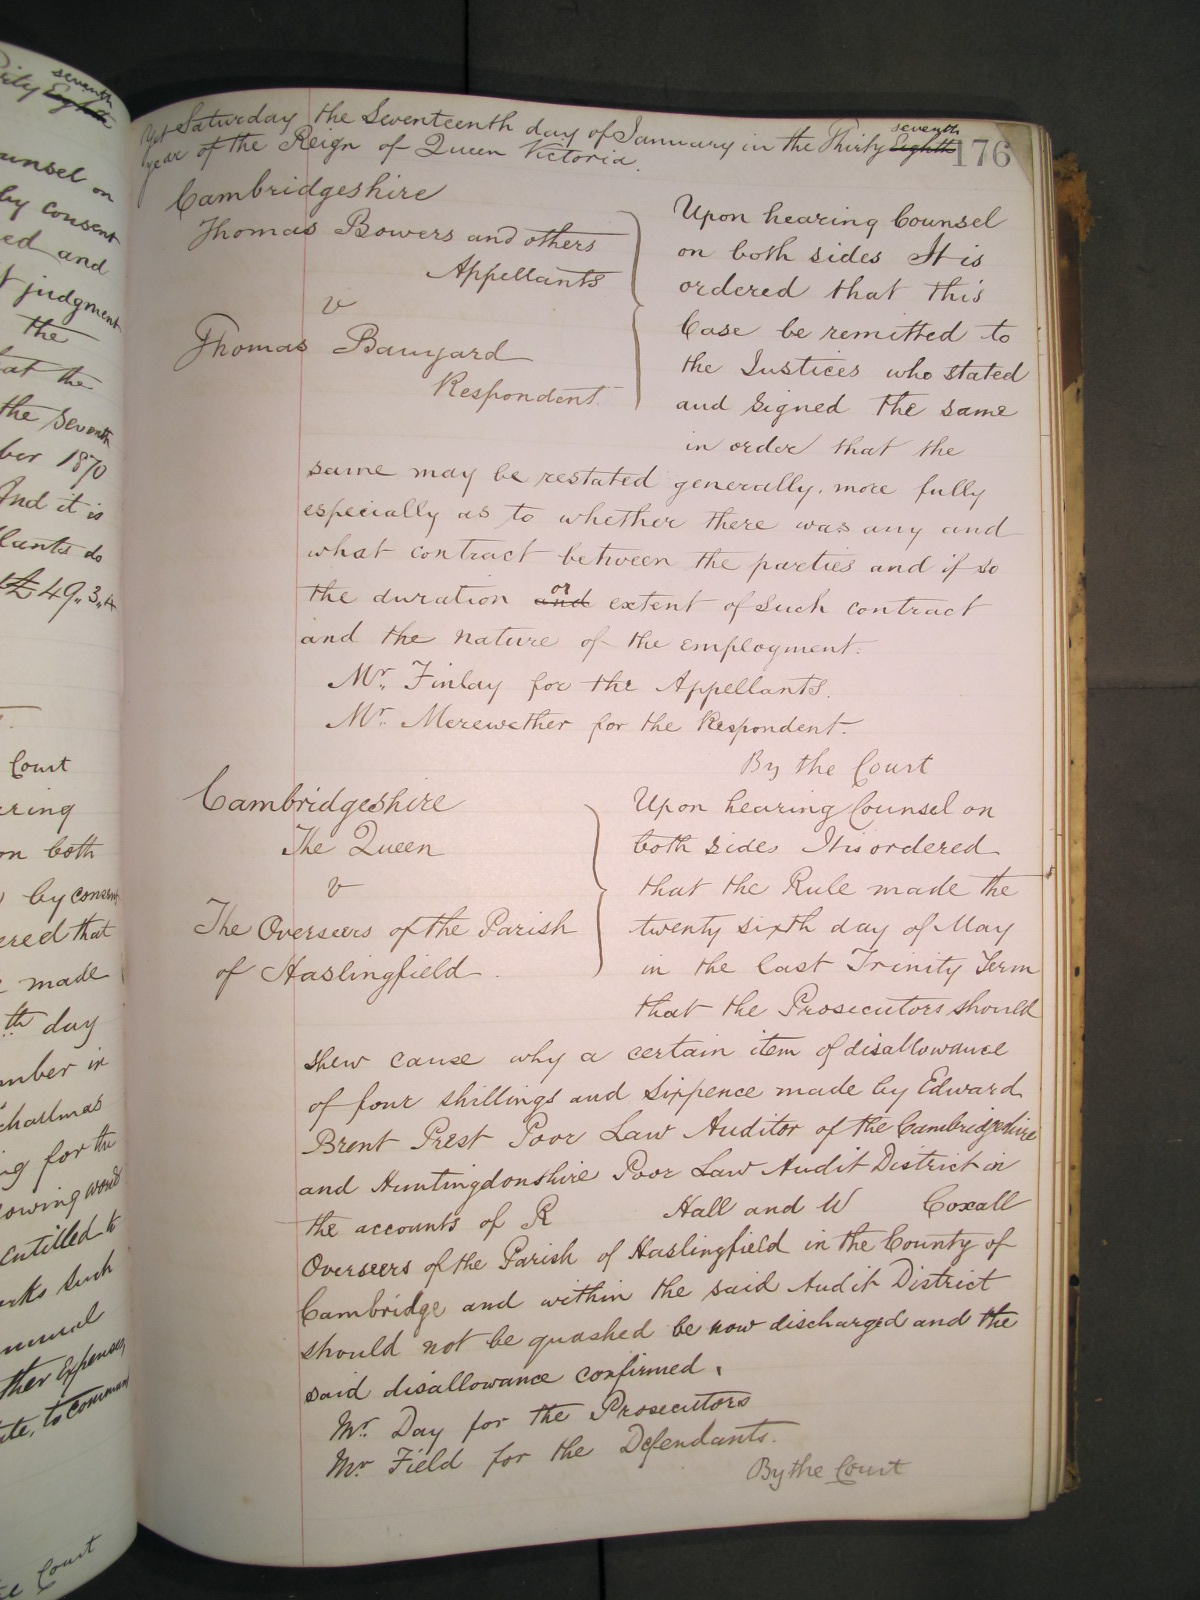 seventh
Eighth
unsel on
by consent
ed and
judgment
the
at the
the seventh
ber 1870
And it is
llants do
£49,,3,,4
Court
ring
on both
by consent
ered that
made
th day
mber in
chaelmas
ng for the
lowing would
entitled to
such
nnual
ther Expenses,
to command
Court
Yet Saturday the Seventeenth day of January in the Thirty Eighth seventh
176
year of the Reign of Queen Victoria.
Cambridgeshire
Thomas Bowers and others
Appellants
v
Thomas Banyard
Respondent
Upon hearing Counsel
on both sides It is
ordered that this
Case be remitted to
the Justices who stated
and signed the same
in order that the
same may be restated generally, more fully
especially as to whether there was any and
what contract between the parties and if so
the duration and or extent of such contract
and the nature of the employment.
Mr. Finlay for the Appellants.
Mr. Merewether for the Respondent.
By the Court
Cambridgeshire
The Queen
v
The Overseers of the Parish
of Haslingfield.
Upon hearing Counsel on
both sides It is ordered
that the Rule made the
twenty sixth day of May
in the last Trinity Term
that the Prosecutors should
shew cause why a certain item of disallowance
of four shillings and sixpence made by Edward
Brent Prest Poor Law Auditor of the Cambridgeshire
and Huntingdonshire Poor Law Audit District in
the accounts of R Hall and W Coxall
Overseers of the Parish of Haslingfield in the County of
Cambridge and within the said Audit District
should not be quashed be now discharged and the
said disallowance confirmed.
Mr. Day for the Prosecutors
Mr Field for the Defendants.
By the Court